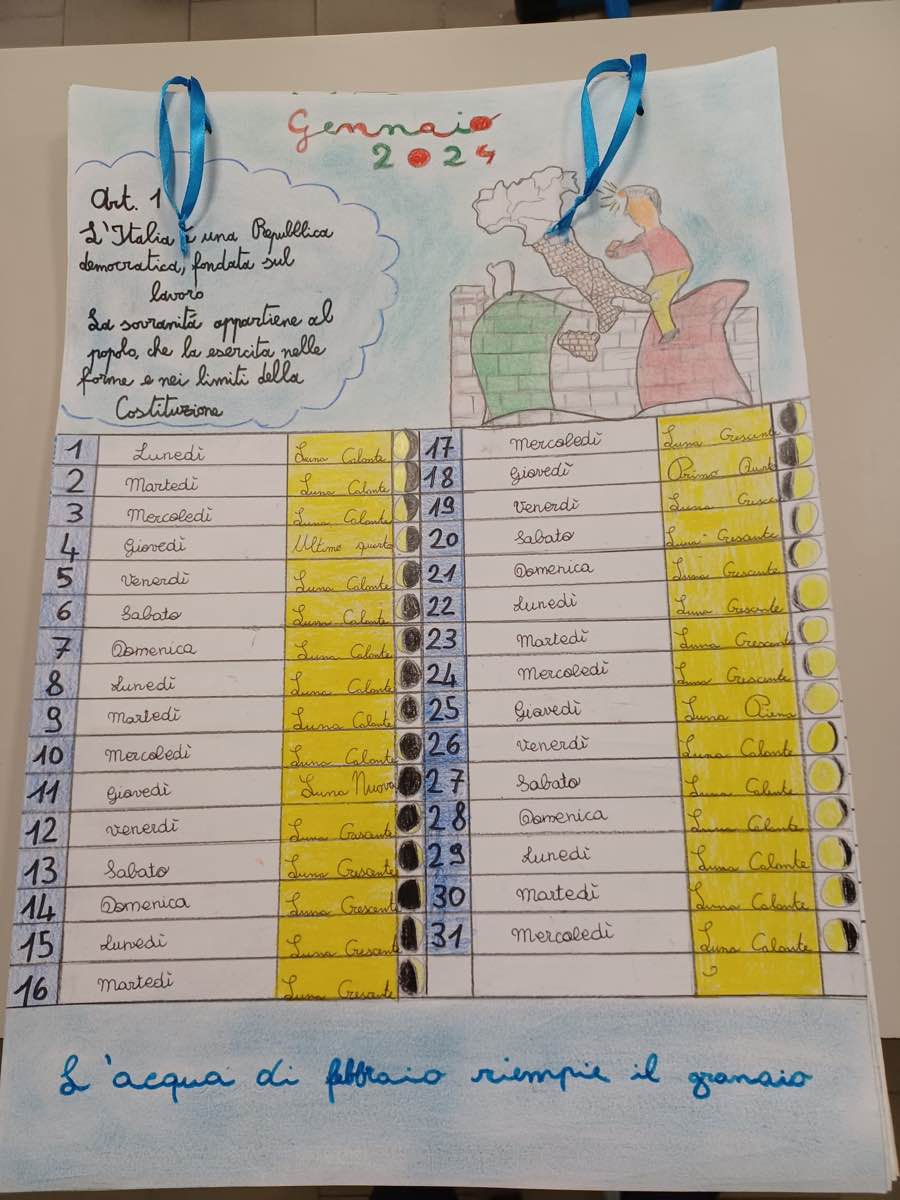 Gennaio
2024
Art. 1
L'Italia è una Repubblica
democratica, fondata sul
lavoro
La sovranità appartiene al
popolo, che la esercita nelle
forme e nei limiti della
Costituzione
1 Lunedì Luna Calante
2 Martedì Luna Calante
3 Mercoledì Luna Calante
4 Giovedì Ultimo quarto
5 Venerdì Luna Calante
6 Sabato Luna Calante
7 Domenica Luna Calante
8 Lunedì Luna Calante
9 Martedì Luna Calante
10 Mercoledì Luna Calante
11 Giovedì Luna Nuova
12 Venerdì Luna Crescente
13 Sabato Luna Crescente
14 Domenica Luna Crescente
15 Lunedì Luna Crescent
16 Martedì Luna Cresante
17 Mercoledì Luna Crescente
18 Giovedì Primo Quarto
19 Venerdì Luna Cresce
20 Sabato Luna Cresante
21 Domenica Luna Crescente
22 Lunedì Luna Crescente
23 Martedì Luna Crescente
24 Mercoledì Luna Crescente
25 Giovedì Luna Piena
26 Venerdì Luna Calante
27 Sabato Luna Calante
28 Domenica Luna Calante
29 Lunedì Luna Calante
30 Martedì Luna Calante
31 Mercoledì Luna Calante
L'acqua di febbraio riempie il granaio